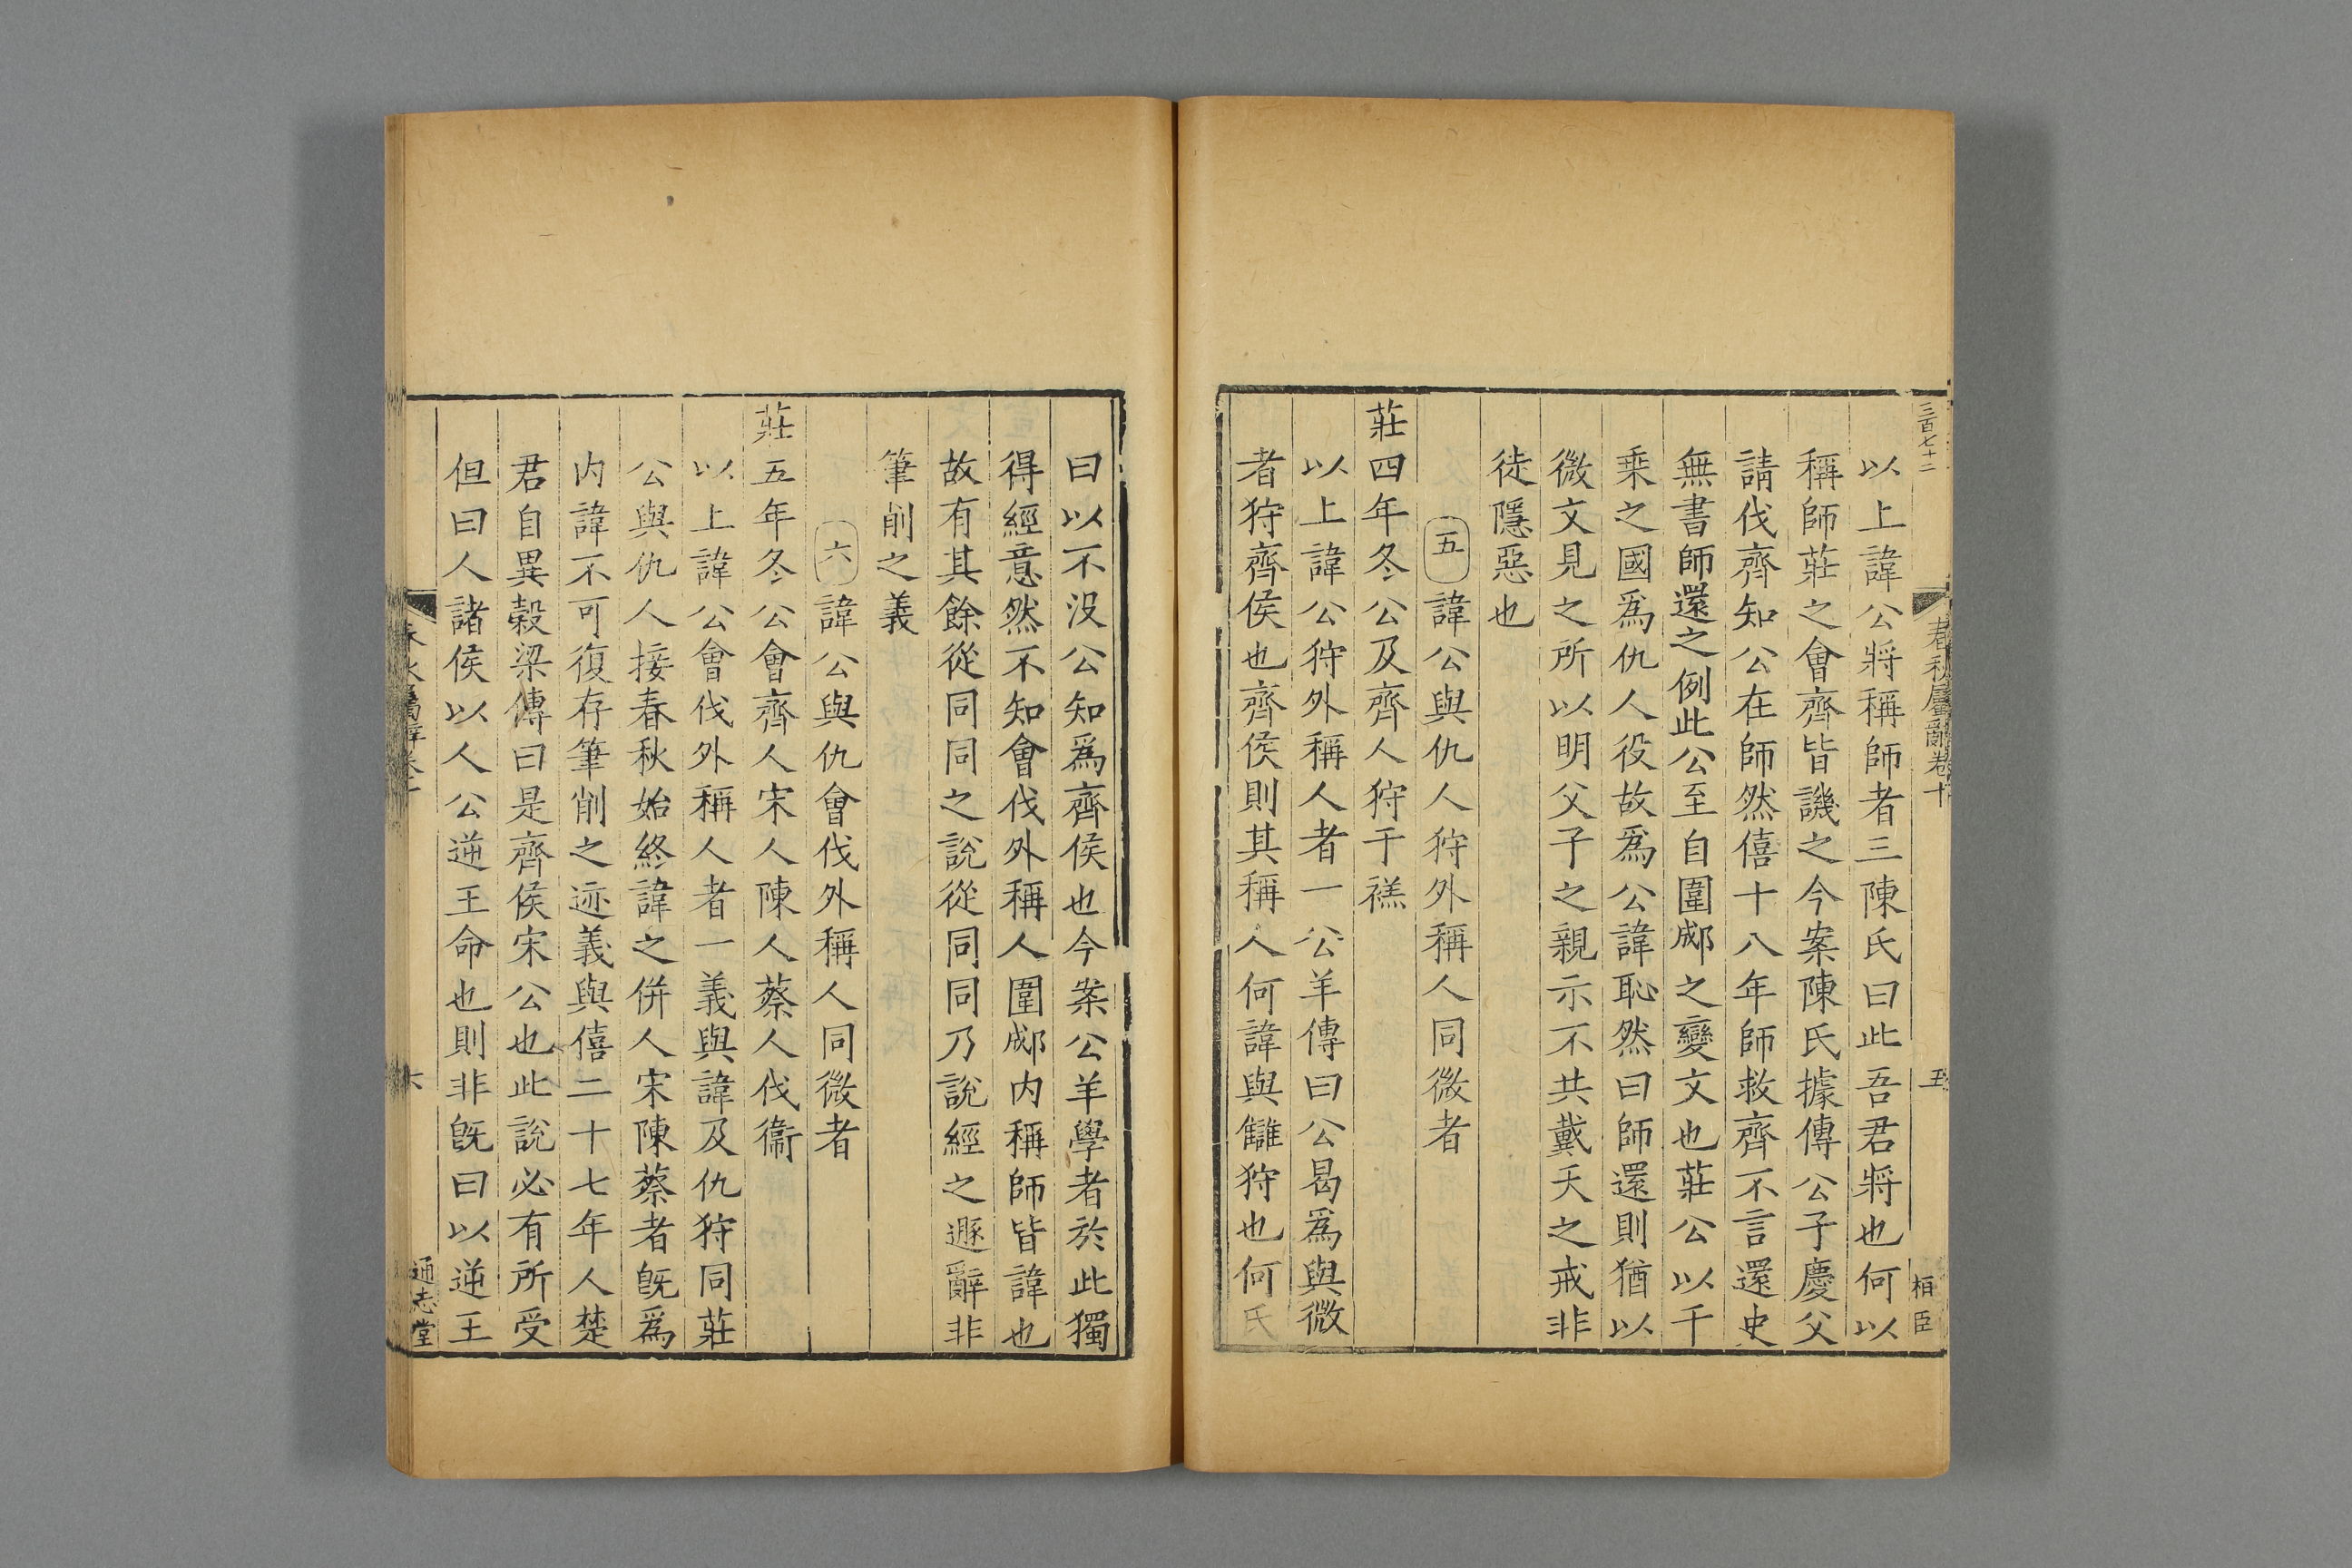 三百七十二
春秋屬辭卷十
五
栢臣
以上諱公將稱師者三陳氏曰此吾君將也何以
稱師莊之會齊皆譏之今案陳氏據傳公子慶父
請伐齊知公在師然僖十八年師救齊不言還史
無書師還之例此公至自圍郕之變文也莊公以千
乗之國爲仇人役故爲公諱恥然曰師還則猶以
微文見之所以明父子之親示不共戴天之戒非
徒隱惡也
五諱公與仇人狩外稱人同微者
莊四年冬公及齊人狩于禚
以上諱公狩外稱人者一公羊傳曰公曷爲與微
者狩齊侯也齊侯則其稱人何諱與讎狩也何氏
曰以不没公知爲齊侯也今案公羊學者於此獨
得經意然不知會伐外稱人圍郕内稱師皆諱也
故有其餘從同同之說從同同乃說經之遯辭非
筆削之義
六諱公與仇會伐外稱人同微者
莊五年冬公會齊人宋人陳人蔡人伐衞
以上諱公會伐外稱人者一義與諱及仇狩同莊
公與仇人接春秋始終諱之併人宋陳蔡者旣爲
内諱不可復存筆削之迹義與僖二十七年人楚
君自異榖梁傳曰是齊侯宋公也此說必有所受
但曰人諸侯以人公逆王命也則非旣曰以逆王
春秋屬辭卷十
六
通志堂